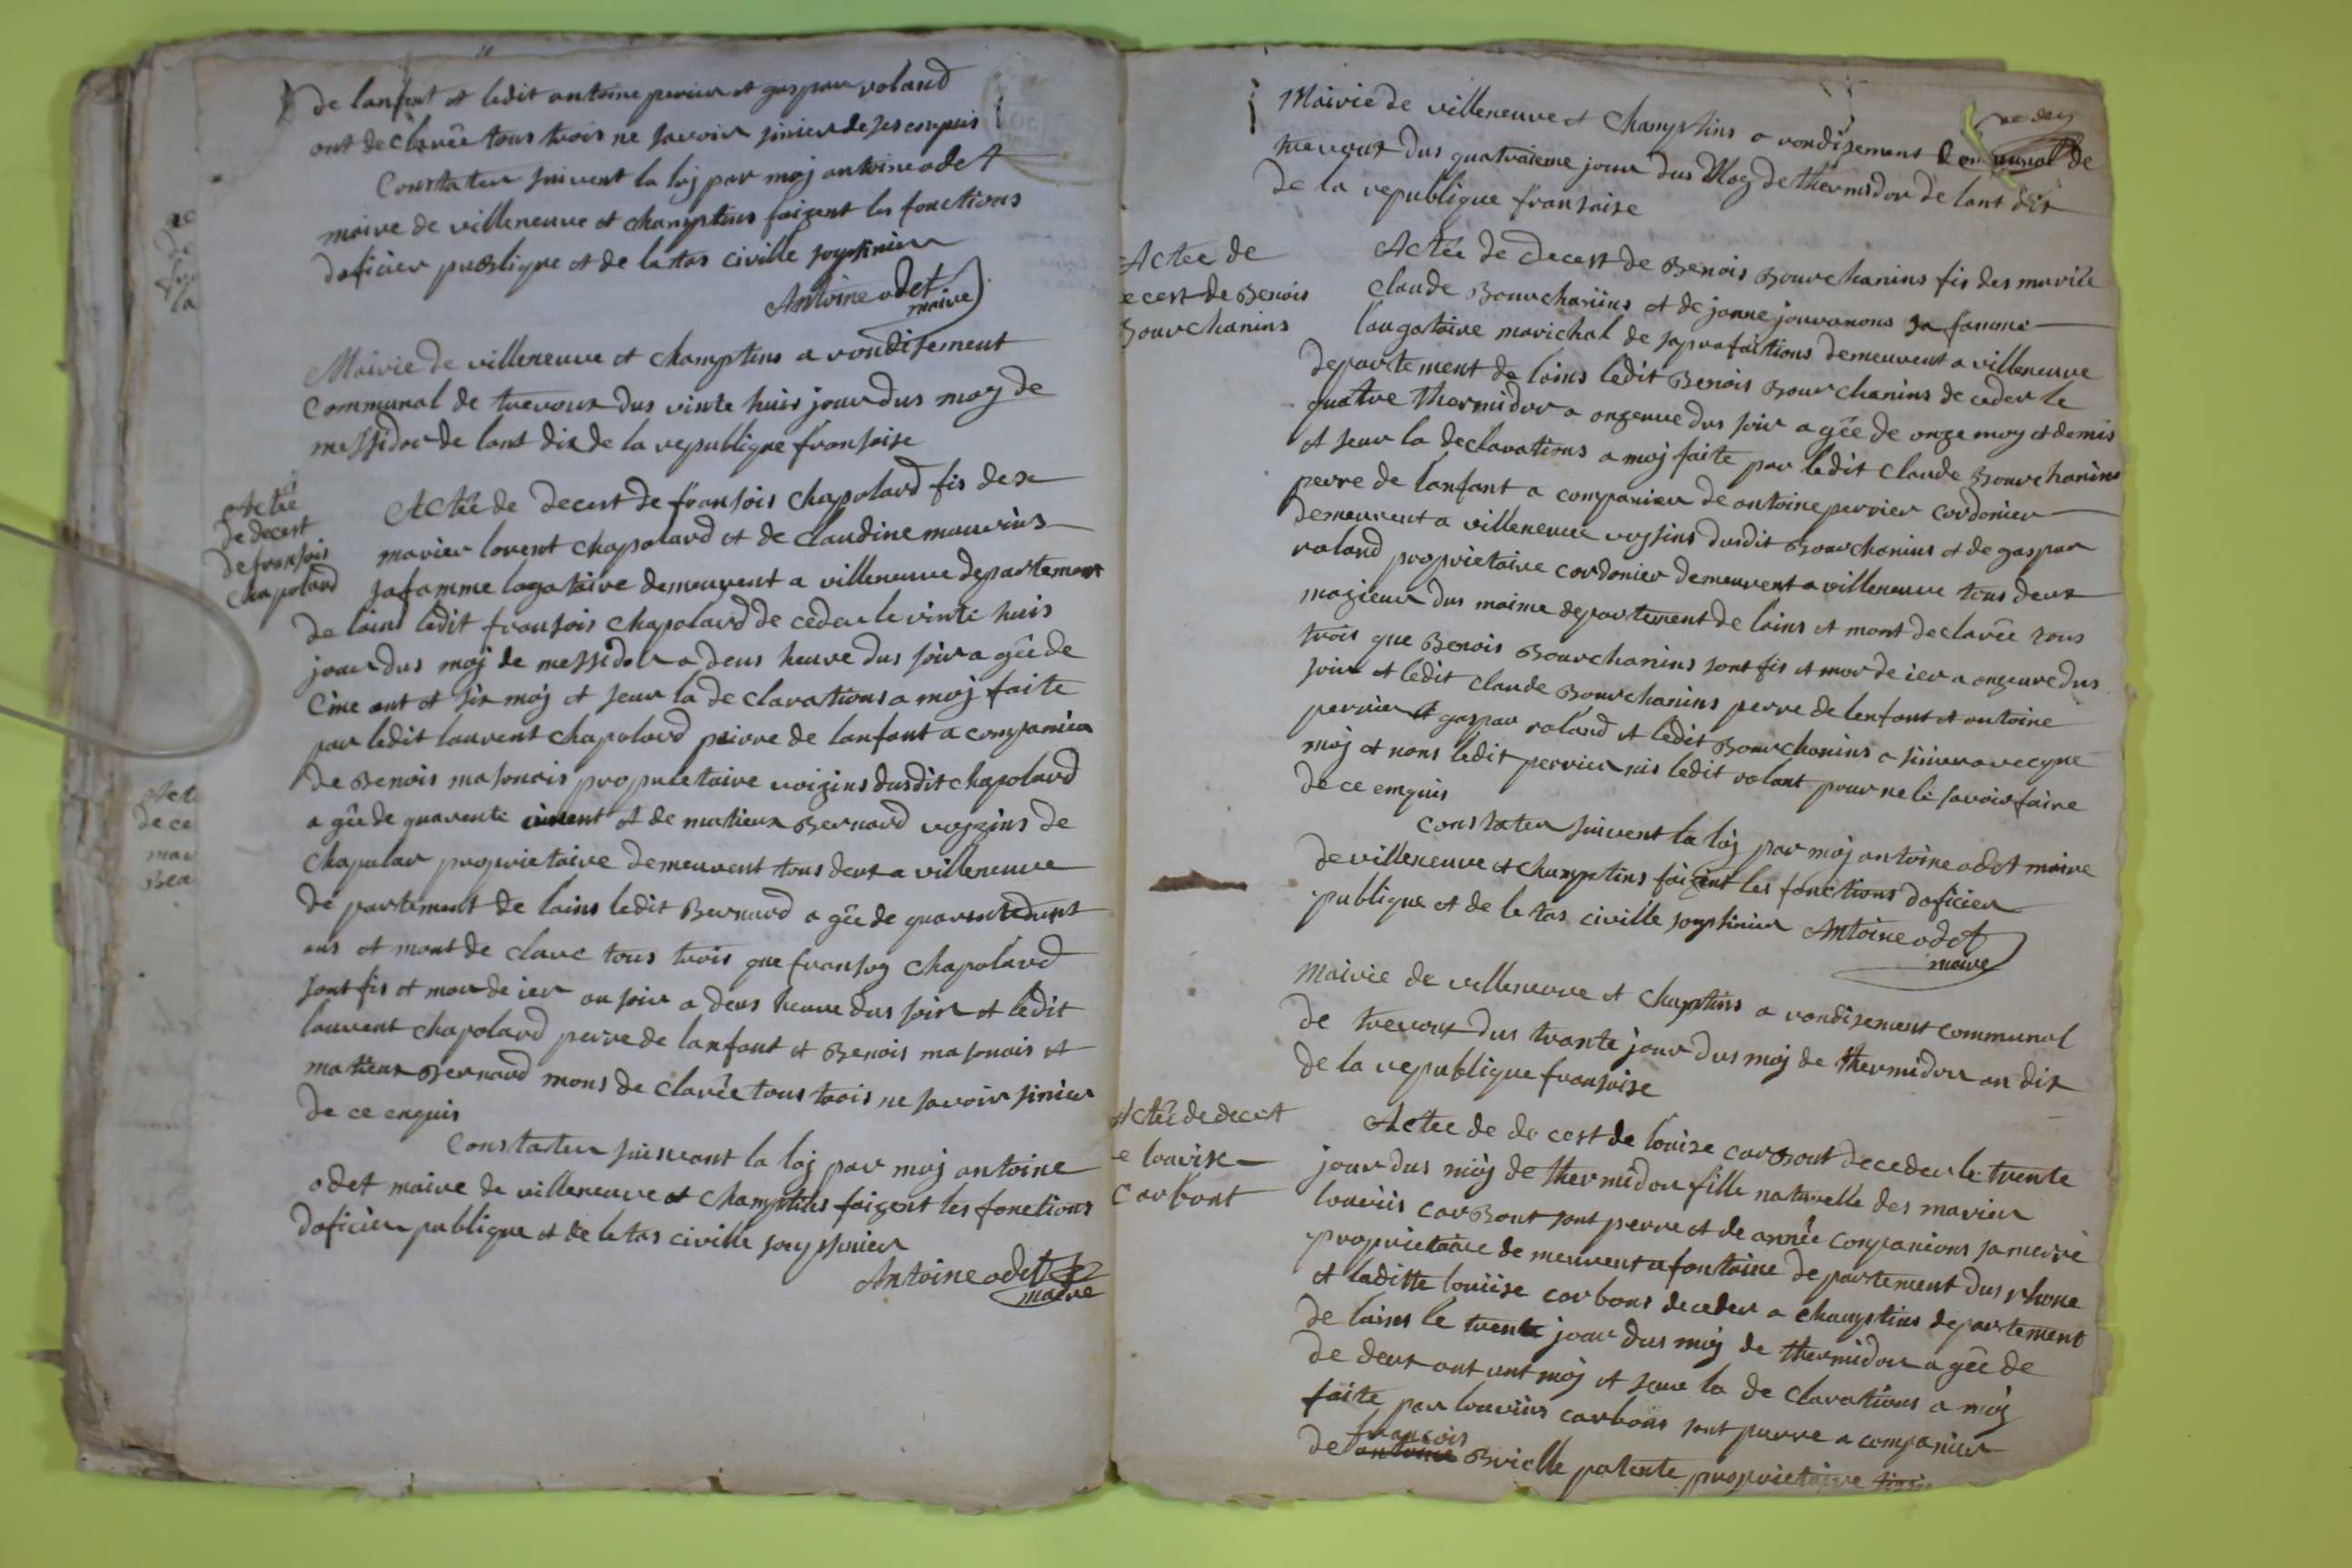 de lanfent et ledit antoine perier et gaspar roland
ont declarée tous trois ne savoir sinier de ses enquis
Constater suivent la loj par moj antoine odet
maire de villeneuve et champtins faizent les fonctions
doficier publique et de letas civille sousinier
Antoine odet
maire
Mairie de villeneuve et champtins a rondisement
Communal de trevoux dus vinte huis jour dus moy de
messidor de lant dix de la republique fransaise
Actée
de decest
de fransois
Chapolard
Actée de decest de fransois chapolard fis dese
marier lorent chapolard et de Claudine mauvins
sa famme logataire demeuvent a villeneuve departement
de lains ledit fransois chapolard de ceder le vinte huis
jour dus moj de messidor a deus heuve dus soir a gée de
Cinc ant et six moj et seur la de clarations a moj faite
par ledit laurent chapolard peirre de lanfant a companier
de Benois masonnois proprietaire voizins dusdit chapolard
a gée de quarente et de matieux Bernard voyzins de
Chapolar proprietaire demeuvent tous deux a villeneuve
de partement de lains ledit Bernard a gée de
ans et mont de clare tous trois que fransoy Chapolard
sont fis et mor de ier au soir a deus heuve dus soir et ledit
laurent chapolard perre de lanfant et Benois masonnois et
matieux Bernard mons de clarée tous trois ne savoir sinier
de ce enquis
Constater suiveant la loj par moj antoine
odet maire de villeneuve et champtins faizent les fonctions
doficier publique et de letas civille sousinier
Antoine odet
maire
Mairie de villeneuve et Champtins a rondisement de
trevoux dus quatraieme jour dus Moy de thermidor de lant dix
de la republique fransaise
Actée de
ecest de Benois
Bourchanins
Actée de decest de Benois Bourchanins fis des mariée
Claude Bourchanins et de janne jouvanons sa famme
laugataire marichal de saprofaitions demeuvent a villeneuve
departement de lains ledit Benois Bourchanins de ceder le
quatre thermidor a onzeuve dus soir a gée de onze moy et demis
et seur la declarations a moj faite par ledit Claude Bourchanins
perre de lanfant a companier de antoine pervier cordonier
demeuvent a villeneuve voysins dusdit Bourchanins et de gaspar
roland proprietaire cordonier demeuvent a villeneuve tous deux
mazieur dus maime departement de lains et mont declarée tous
trois que Benois Bourchanins sont fis et mor de ier a onzeuve dus
soir et ledit claude Bourchanins perre de lenfant et antoine
pervier et gaspar roland et ledit Bourchanins a sinier avecque
moj et nons ledit pervier nis ledit rolant pour ne le savoir faire
de ce enquis
Constater suivent la loj par moj antoine odet maire
de villeneuve et champtins faizent les fonctions doficier
publique et de letas civille sousinier Antoine odet
maire
Mairie de villeneuve et Champtins a rondisement communal
de trevoux dus trante jour dus moj de thermidor an dix
de la republique fransaise
Actée de decest
e louise
Carbont
Actée de de cest de louise carbont deceder le trente
jour dus moj de thermidor fille naturelle des marier
louviis carbont sont perre et de année conpanions sa merre
proprietaire de meuvent a fontaine departement dus rhone
et laditte louiise carbons deceder a champtins departement
de lains le trente jour dus moj de thermidor a gée de
de deux ant ant moj et seur la de clarations a moj
faite par louviis carbons sont perre a companier
francois
de antoine Brielle patente proprietaire